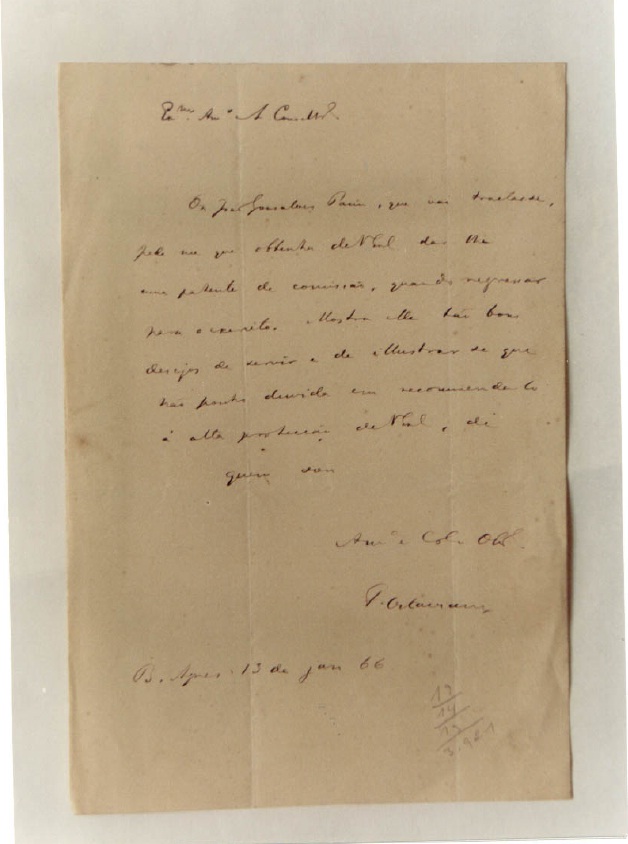 Ex.mo Am.o A Cons.o
Gonsalves, que vai
pede me que obtenha de V Ex.
uma patente de comissão, quando regressar
para o exercito. Mostra tão bons
desejos de servir e de illustrar se que
não ponho duvida em recommendal o
á alta protecção de V Ex., de
quem sou
Am.o e Col.a Ob.
F. Octaviano
B. Ayres. 13 de jan 66.
13/
14/